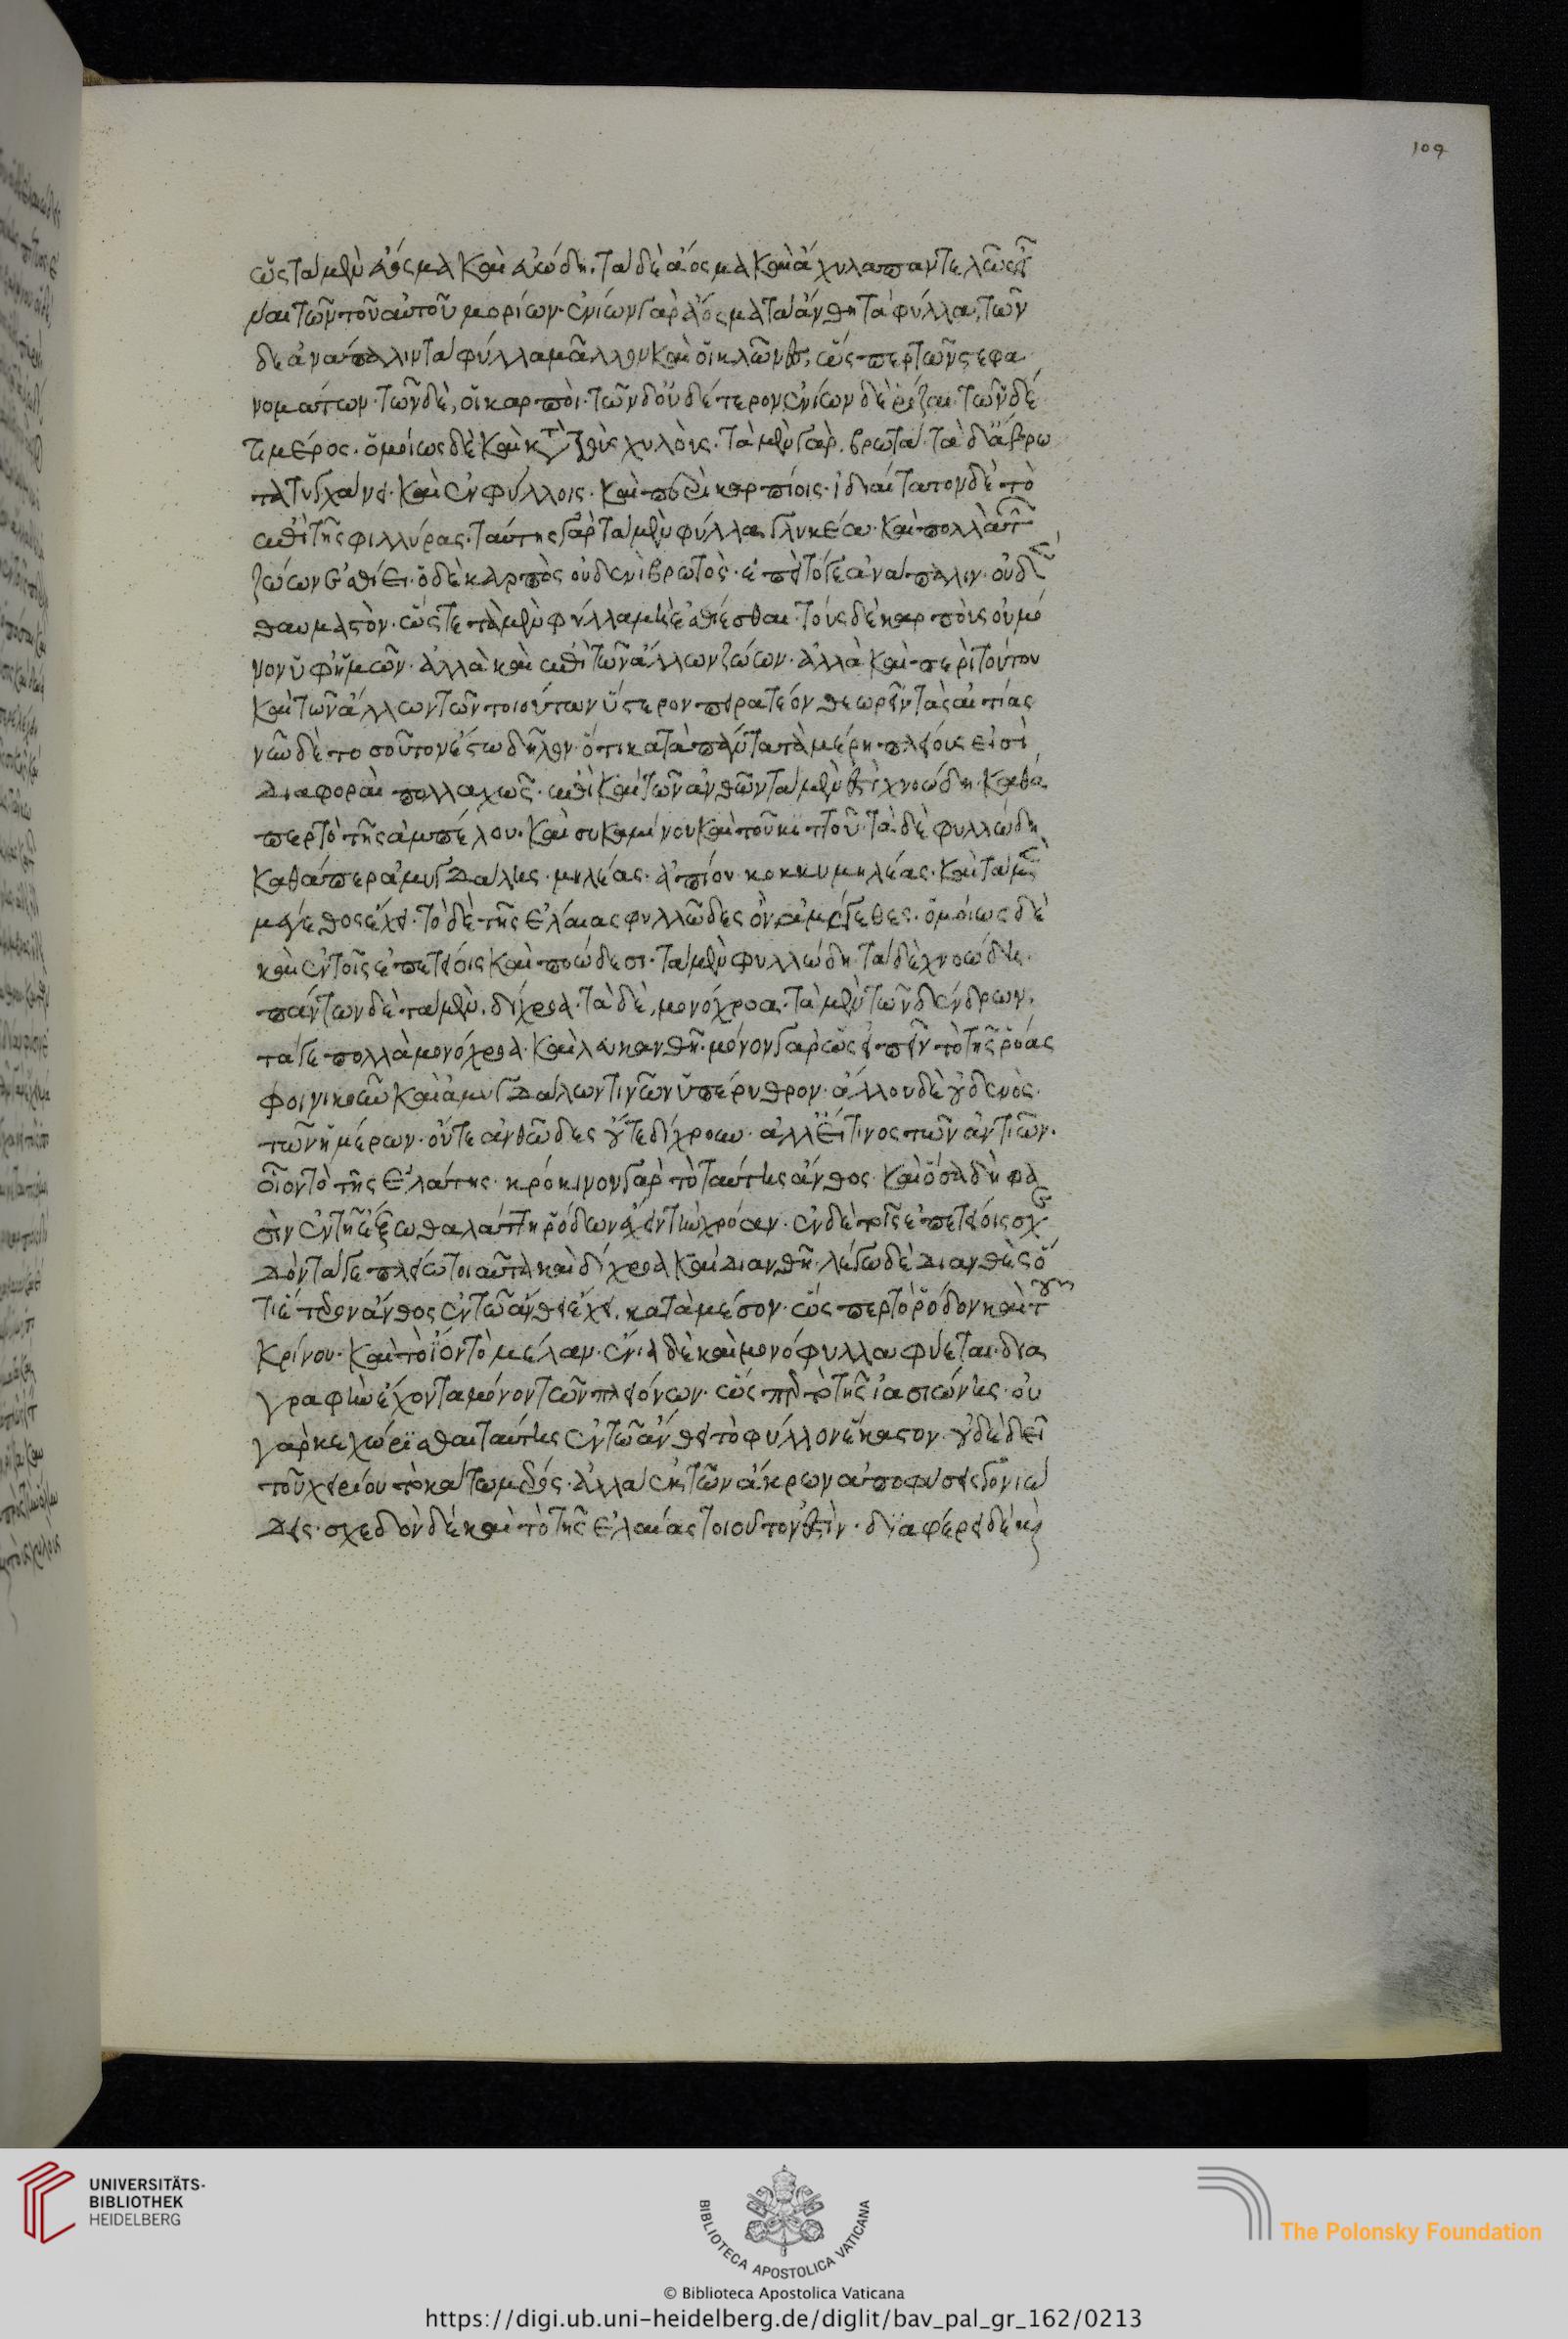 109
ὥς τὰ μὲν εὔοσμα καὶ εὐώδη. τὰ δὲ ἄοσμα καὶ ἄχυλα παντελῶς εἶ
ναι τῶν τοῦ αὐτοῦ μορίων· ἐνίων γὰρ εὔοσμα τὰ ἄνθη τὰ φύλλα, τῶν
δε ἀνάπαλιν τὰ φύλλα μᾶλλον καὶ οἱ κλῶνες, ὥσπερ τῶν στεφα
νομάτων· τῶν δὲ, οἱ καρποὶ· τῶν δ' οὐδέτερον ἐνίων δὲ ῥίζαι· τῶν δέ
τι μέρος. ὁμοίως δὲ καὶ κατὰ τοὺς χυλοὺς. τὰ μὲν γὰρ. βρωτὰ· τὰ δ' ἄβρω
τα τυγχάνει· καὶ ἐν φύλλοις. καὶ περικαρπίοις. ἰδιαίτατον δὲ τὸ
ἐπὶ τῆς φιλλύρας. ταύτης γὰρ τὰ μὲν φύλλα γλυκέα· καὶ πολλὰ τῶν
ζώων ἐσθίει· ὁ δὲ καρπὸς οὐδενὶ βρωτὸς· ἐπεὶ τό γε ἀνάπαλιν· οὐδὲν
θαυμαστὸν· ὥστε τὰ μὲν φύλλα μὴ ἐσθίεσθαι· τοὺς δὲ καρποὺς οὐ μό
νον ὑφ' ἡμῶν. ἀλλὰ καὶ ἐπὶ τῶν ἄλλων ζώων. ἀλλὰ καὶ περὶ τούτου
καὶ τῶν ἄλλων τῶν τοιούτων ὕστερον πειρατέον θεωρεῖν τὰς αἰτίας
νῦν δὲ τοσοῦτον ἔστω δῆλον· ὅτι κατὰ πάντα τὰ μέρη πλείους εἰσὶ
διαφοραὶ πολλαχῶς. ἐπεὶ καὶ τῶν ἀνθῶν τὰ μὲν ἐστὶ χνοώδη· καθά
περ τὸ τῆς ἀμπέλου. καὶ συκαμίνου καὶ τοῦ κιττοῦ. τὰ δὲ φυλλώδη
καθάπερ ἀμυγδαλῆς. μηλέας. ἀπίου κοκκυμηλέας. καὶ τὰ μὲν
μέγεθος ἔχει. τὸ δὲ τῆς ἐλαίας φυλλῶδες ὂν ἀμέγεθες. ὁμοίως δὲ
καὶ ἐν τοῖς ἐπετείοις καὶ ποώδεσι. τὰ μὲν φυλλώδη τὰ δὲ χνοώδη.
πάντων δὲ τὰ μὲν. δίχροα. τὰ δὲ, μονόχροα. τὰ μὲν τῶν δένδρων,
τά γε πολλὰ μονόχροα. καὶ λευκανθῆ. μόνον γὰρ ὡς εἰπεῖν τὸ τῆς ῥόας
φοινικοῦν καὶ ἀμυγδάλων τινῶν ὑπέρυθρον. ἄλλου δὲ οὐδενὸς.
τῶν ἡμέρων. οὔτε ἀνθῶδες οὔτε δίχρουν. ἀλλ' εἴ τινος τῶν ἀντιῶν.
οἷον τὸ τῆς ἐλάτης. κρόκινον γὰρ τὸ ταύτης ἄνθος. καὶ ὅσα δὴ φα
σὶν ἐν τῇ ἔξω θαλάττῃ ῥόδων ἔχειν τὴν χρόαν. ἐν δὲ τοῖς ἐπετείοις σχε
δὸν τά γε πλείω τοιαῦτα καὶ δίχροα καὶ διανθῆ. λέγω δὲ διανθὲς ὅ
τι ἕτερον ἄνθος ἐν τῷ ἄνθει ἔχει. κατὰ μέσον. ὥσπερ τὸ ῥόδον καὶ τὸ
κρίνον. καὶ τὸ ἴον τὸ μέλαν. ἔνια δὲ καὶ μονόφυλλα φύεται. δια
γραφὴν ἔχοντα μόνον τῶν πλειόνων. ὥσπερ τὸ τῆς ἰασιώνης. οὐ
γὰρ κεχώρισθαι ταύτης ἐν τῷ ἄνθει τὸ φύλλον ἕκαστον. οὐδὲ δεῖ
τοῦ χειρίου τὸ κάτω μέρος. ἀλλὰ ἐκ τῶν ἄκρων ἀποφύσεις γωνιώ
δεις. σχεδὸν δὲ καὶ τὸ τῆς ἐλαίας τοιοῦτον ἐστὶν. διαφέρει δὲ καὶ
UNIVERSITÄTS-
BIBLIOTHEK
HEIDELBERG
BIBLIOTECA APOSTOLICA VATICANA
The Polonsky Foundation
© Biblioteca Apostolica Vaticana
https://digi.ub.uni-heidelberg.de/diglit/bav_pal_gr_162/0213